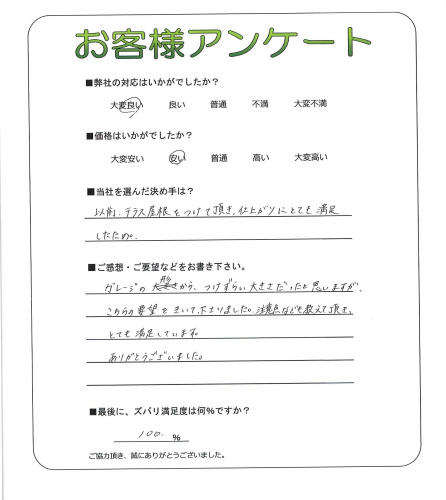 お客様アンケート
■弊社の対応はいかがでしたか？
大変良い 良い 普通 不満 大変不満
■価格はいかがでしたか？
大変安い 安い 普通 高い 大変高い
■当社を選んだ決め手は？
以前、テラス屋根をつけて頂き、仕上がりにとても満足
したため。
■ご感想・ご要望などをお書き下さい。
ガレージの 形 から、つけずらい大きさだったと思いますが、
こちらの要望をきいて下さりました。注意点なども教えて頂き、
とても満足しています。
ありがとうございました。
■最後に、ズバリ満足度は何％ですか？
100. ％
ご協力頂き、誠にありがとうございました。